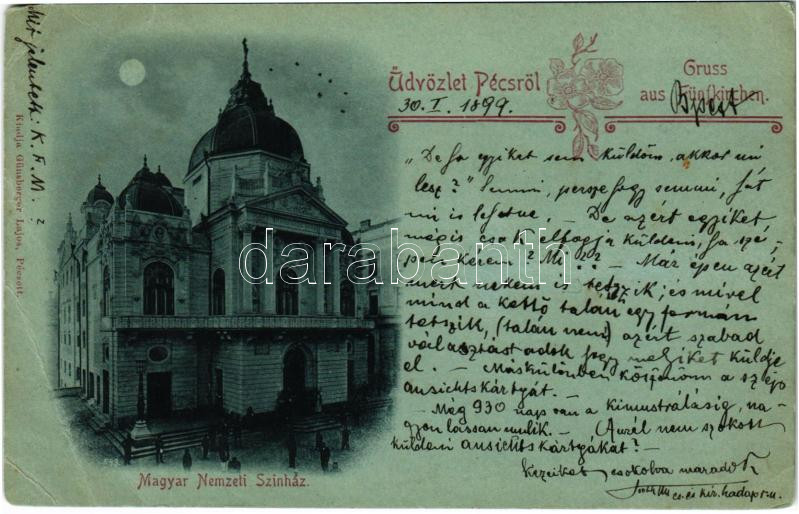 Üdvözlet Pécsről
Gruss
aus Fünfkirchen.
Bpest
30. I. 1899.
„De ha egyiket sem küldöm, akkor mi
lesz?" Semmi, persze hogy semmi, hát
mi is lehetne. — De azért egyiket,
mégis csak elfogja küldeni, ha szé-
pen kérem? Mi??? — Már épen azért
mert nekem is tetszik; és mivel
mind a kettő talán egy formán
tetszik, (talán nem) azért szabad
választást adok hogy melyiket küldje
el. — Máskülönben köszönöm a szép
ansichtskártyát.
— Még 930 nap van a kimustrálásig, na-
gyon lassan mulik. — Aurél nem szokott
küldeni ansichtskártyákat? —
Kezeiket csokolva maradok
cs. és kir. hadapród
Mit jelentek: K. F. M. ?
Kiadja Günsberger Lajos, Pécsett.
darabanth
Magyar Nemzeti Szinház.